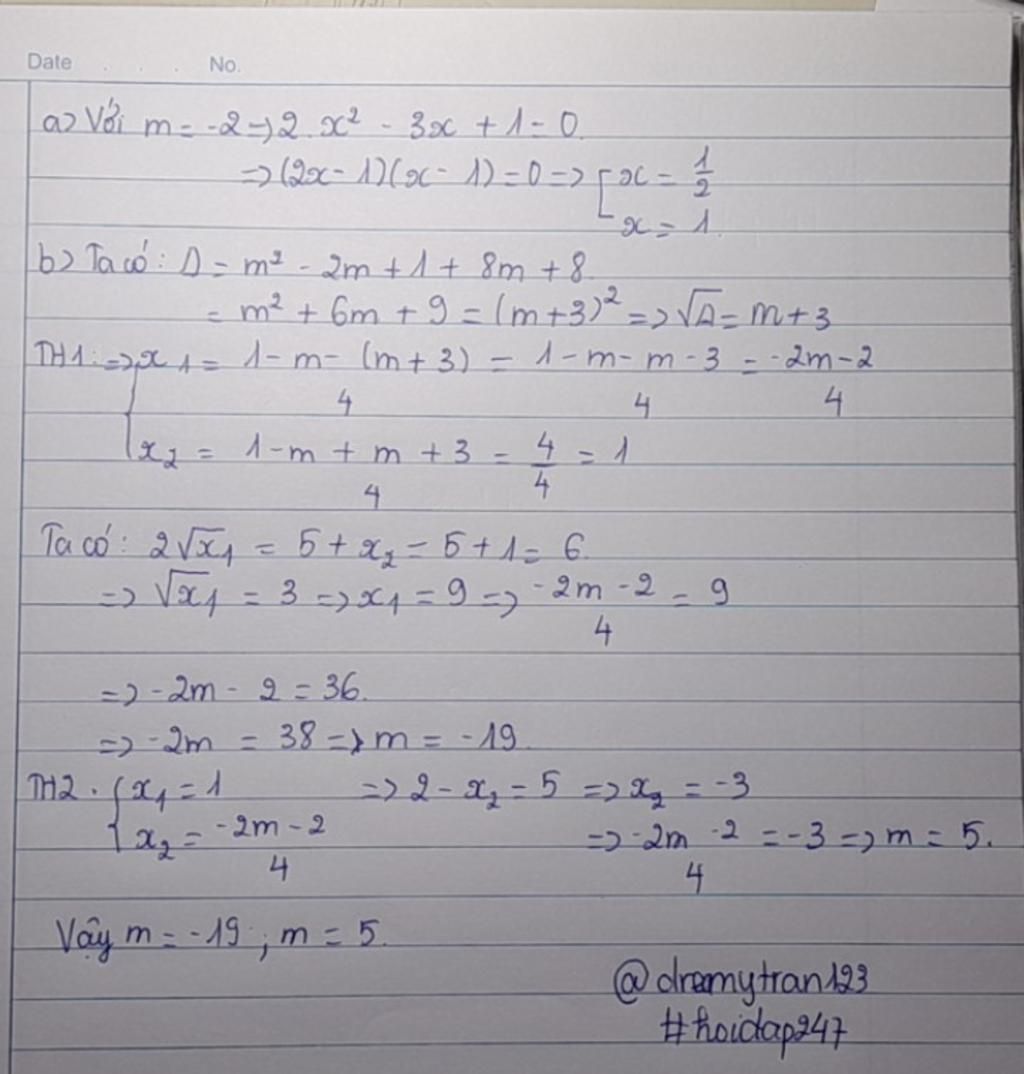 Date . . . No.
a) Với m = -2 => 2.x² - 3x + 1 = 0.
=> (2x - 1)(x - 1) = 0 => [ x = 1/2
x = 1.
b) Ta có: Δ = m² - 2m + 1 + 8m + 8.
= m² + 6m + 9 = (m+3)² => √Δ = m + 3
TH1: => { x₁ = (1 - m - (m + 3))/4 = (1 - m - m - 3)/4 = (-2m - 2)/4
x₂ = (1 - m + m + 3)/4 = 4/4 = 1
Ta có: 2√x₁ = 5 + x₂ = 5 + 1 = 6.
=> √x₁ = 3 => x₁ = 9 => (-2m - 2)/4 = 9
=> -2m - 2 = 36.
=> -2m = 38 => m = -19.
TH2. { x₁ = 1 => 2 - x₂ = 5 => x₂ = -3
x₂ = (-2m - 2)/4 => (-2m - 2)/4 = -3 => m = 5.
Vậy m = -19 ; m = 5.
@dreamytran123
#hoidap247